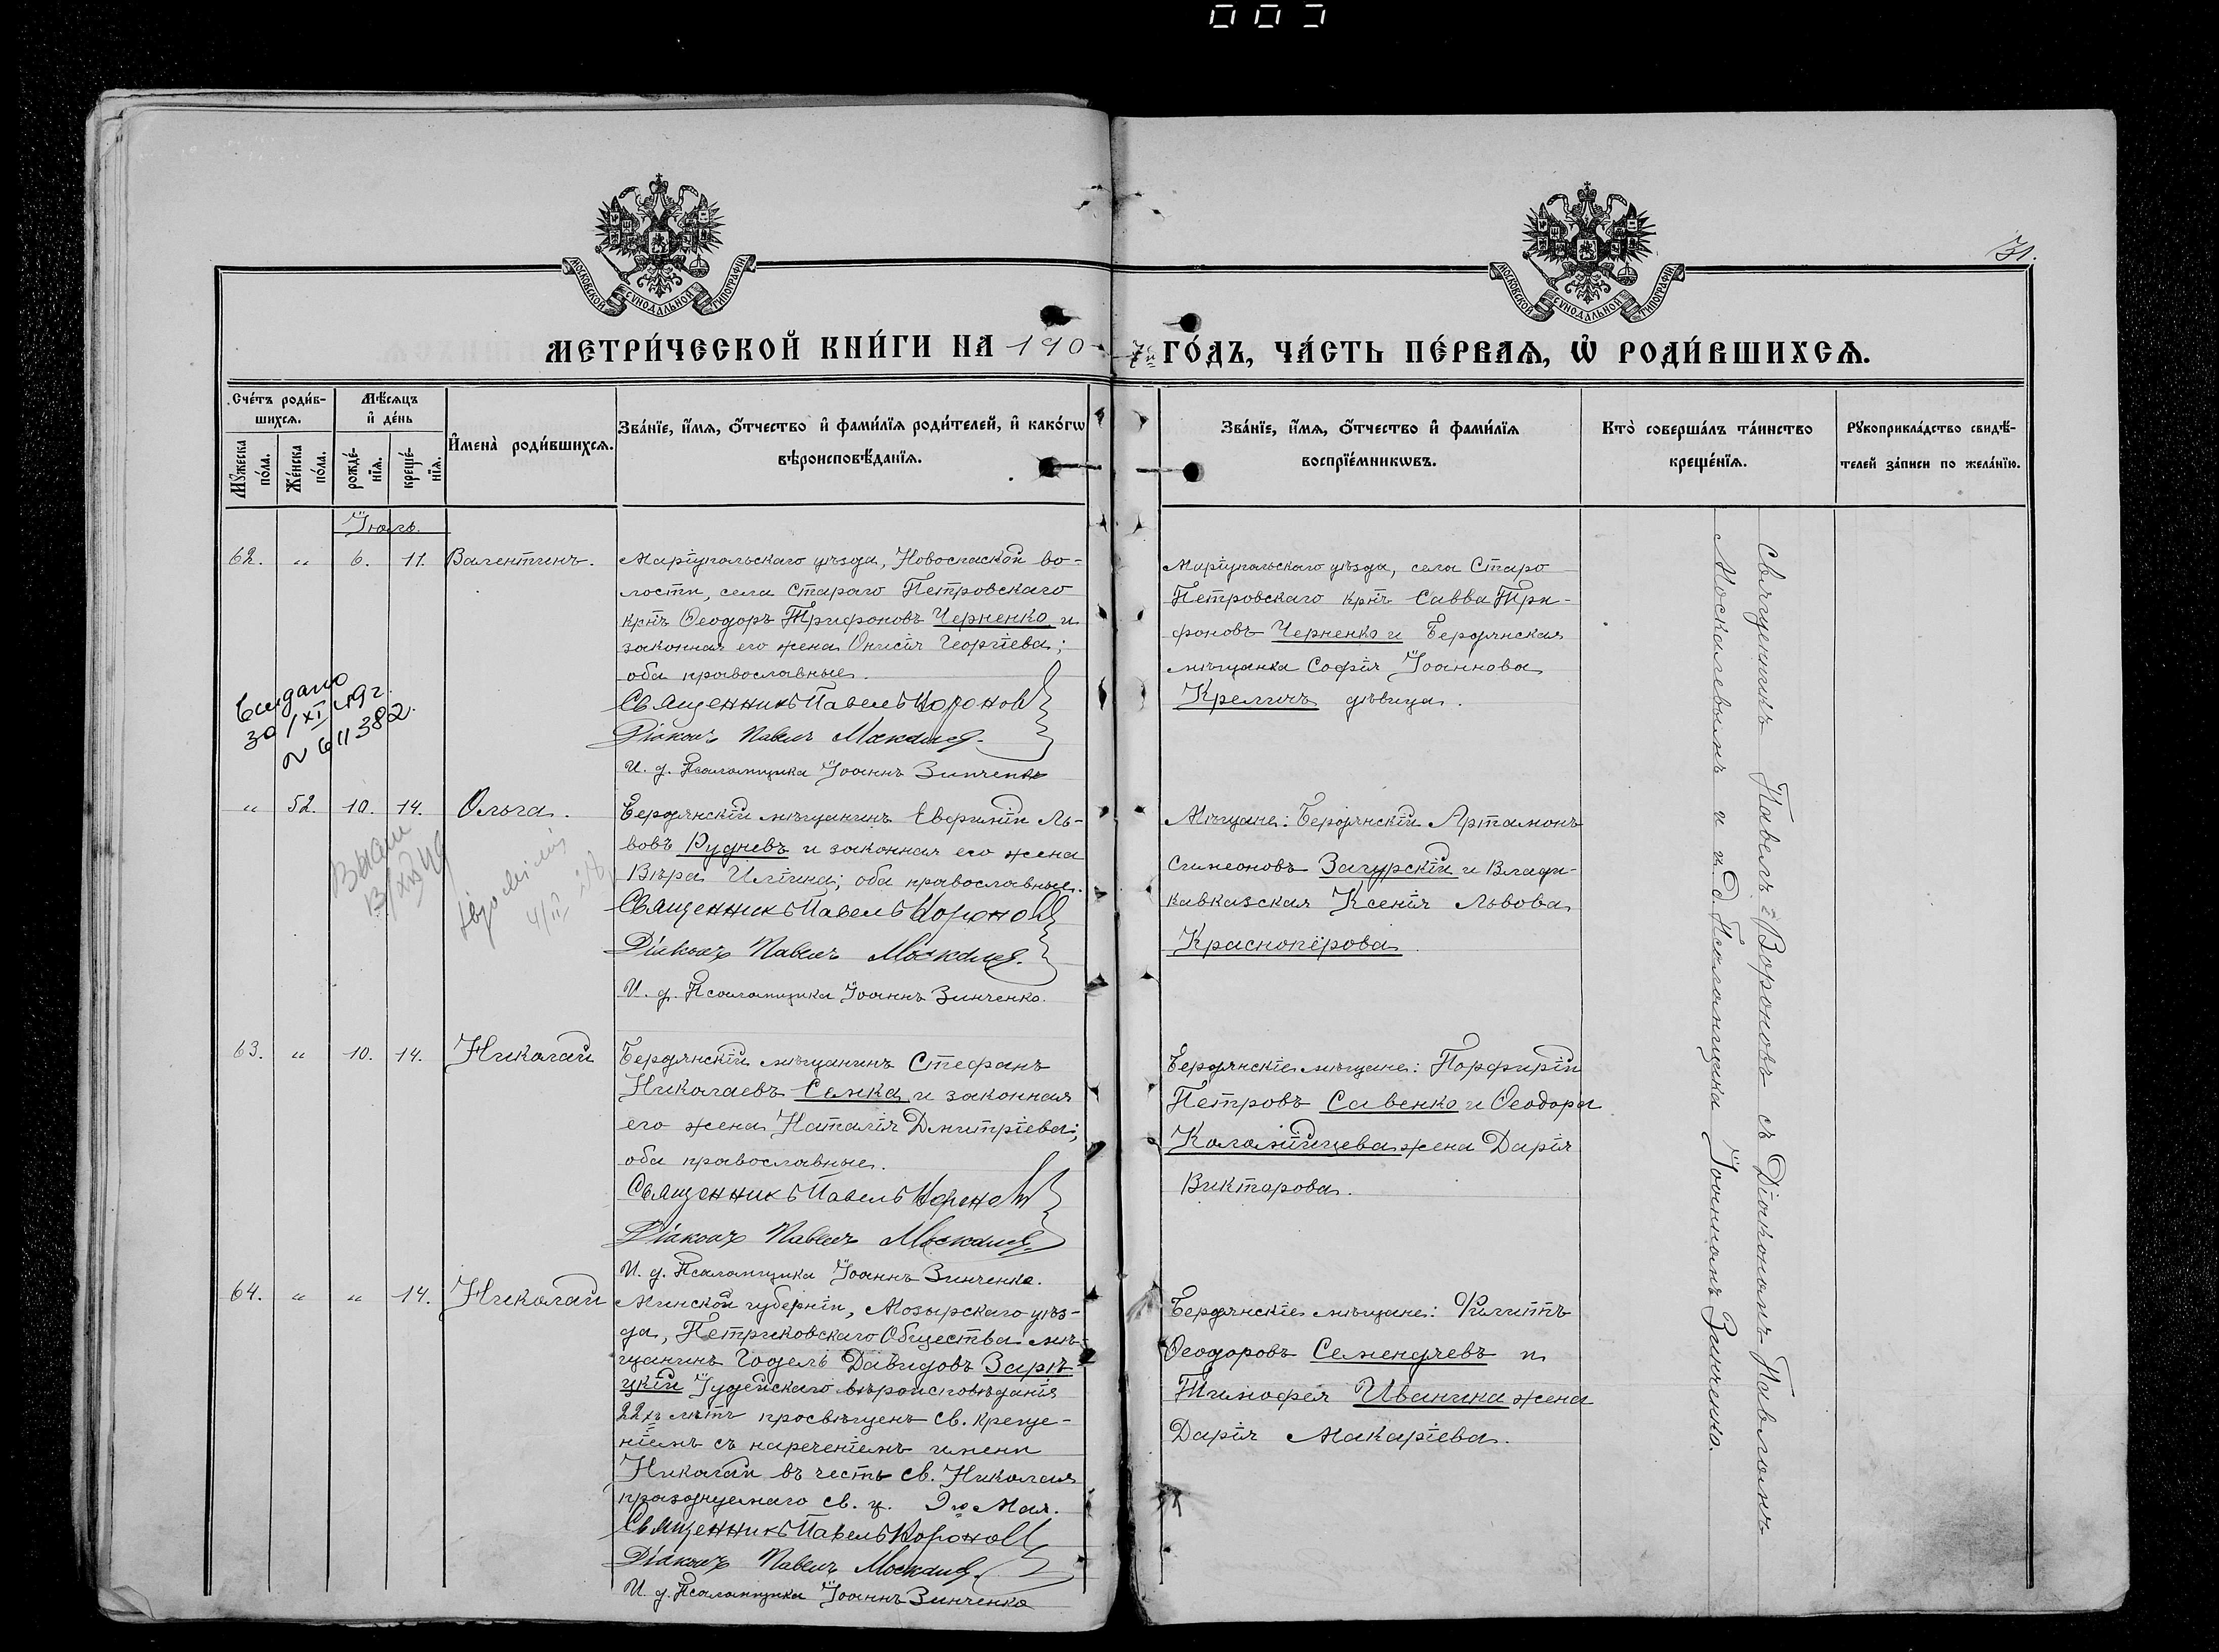 31.
МОСКОВСКОЙ СѴНОДАЛЬНОЙ ТИПОГРАФІИ
МОСКОВСКОЙ СѴНОДАЛЬНОЙ ТИПОГРАФІИ
МЕТРИ́ЧЕСКОЙ КНИ́ГИ НА 190
7й ГО́ДЪ, ЧА́СТЬ ПЕ́РВАѦ, Ѡ҆ РОДИ́ВШИХСѦ.
Сче́тъ роди́в-
шихсѧ.
Мѣ́сѧцъ
и҆ де́нь
Мꙋ́жеска
по́ла.
Же́нска
по́ла.
рожде́-
нїѧ.
креще́-
нїѧ.
И҆мена̀ роди́вшихсѧ.
Зва́нїе, и҆́мѧ, о҆́тчество и҆ фами́лїѧ роди́телей, и҆ како́гѡ
вѣроисповѣ́данїѧ.
Зва́нїе, и҆́мѧ, о҆́тчество и҆ фами́лїѧ
воспрїе́мникѡвъ.
Кто̀ соверша́лъ та́инство
креще́нїѧ.
Рꙋкоприкла́дство свидѣ́-
телей за́писи по жела́нїю.
Іюль.
62. " 6. 11. Валентинъ.
Маріупольскаго уѣзда, Новоспаской во-
лости, села Стараго Петровскаго
крнъ Ѳеодоръ Трифоновъ Черненко и
законная его жена Онисія Георгіева;
оба православные.
Священникъ Павелъ Вороновъ
Діаконъ Павелъ Москалев
И. д. Псаломщика Іоаннъ Зинченко
Маріупольскаго уѣзда, села Старо
Петровскаго крнъ Савва Три-
фоновъ Черненко и Бердянская
мѣщанка Софія Іоаннова
Кремичъ дѣвица.
" 52. 10. 14. Ольга.
Бердянскій мѣщанинъ Евфимій Ль-
вовъ Рудневъ и законная его жена
Вѣра Иліина; оба православные.
Священникъ Павелъ Вороновъ
Діаконъ Павелъ Москалев.
И. д. Псаломщика Іоаннъ Зинченко.
Мѣщане: Бердянскій Артамонъ
Симеоновъ Загурскій и Влади-
кавказская Ксенія Львова
Краснопёрова.
63. " 10. 14. Николай
Бердянскій мѣщанинъ Стефанъ
Николаевъ Самка и законная
его жена Наталія Дмитріева;
оба православные.
Священникъ Павелъ Вороновъ
Діаконъ Павелъ Москалев.
И. д. Псаломщика Іоаннъ Зинченко.
Бердянскіе мѣщане: Порфирій
Петровъ Савенко и Ѳеодора
Коломійцева жена Дарія
Викторова.
64. " " 14. Николай
Минской губерніи, Мозырскаго уѣз-
да, Петриковскаго Общества мѣ-
щанинъ Годель Давидовъ Зарѣ-
цкій Іудейскаго вѣроисповѣданія
22хъ лѣтъ просвѣщенъ св. креще-
ніемъ съ нареченіемъ имени
Николай въ честь св. Николая
празднуемаго св. ц. 9го Мая.
Священникъ Павелъ Вороновъ
Діаконъ Павелъ Москалев.
И. д. Псаломщика Іоаннъ Зинченко
Бердянскіе мѣщане: Филиппъ
Ѳеодоровъ Семендяевъ и
Тимофея Иванина жена
Дарія Макаріева.
Священникъ Павелъ Вороновъ съ Діакономъ Павломъ
Москалевымъ и и. д. Псаломщика Іоанномъ Зинченко.